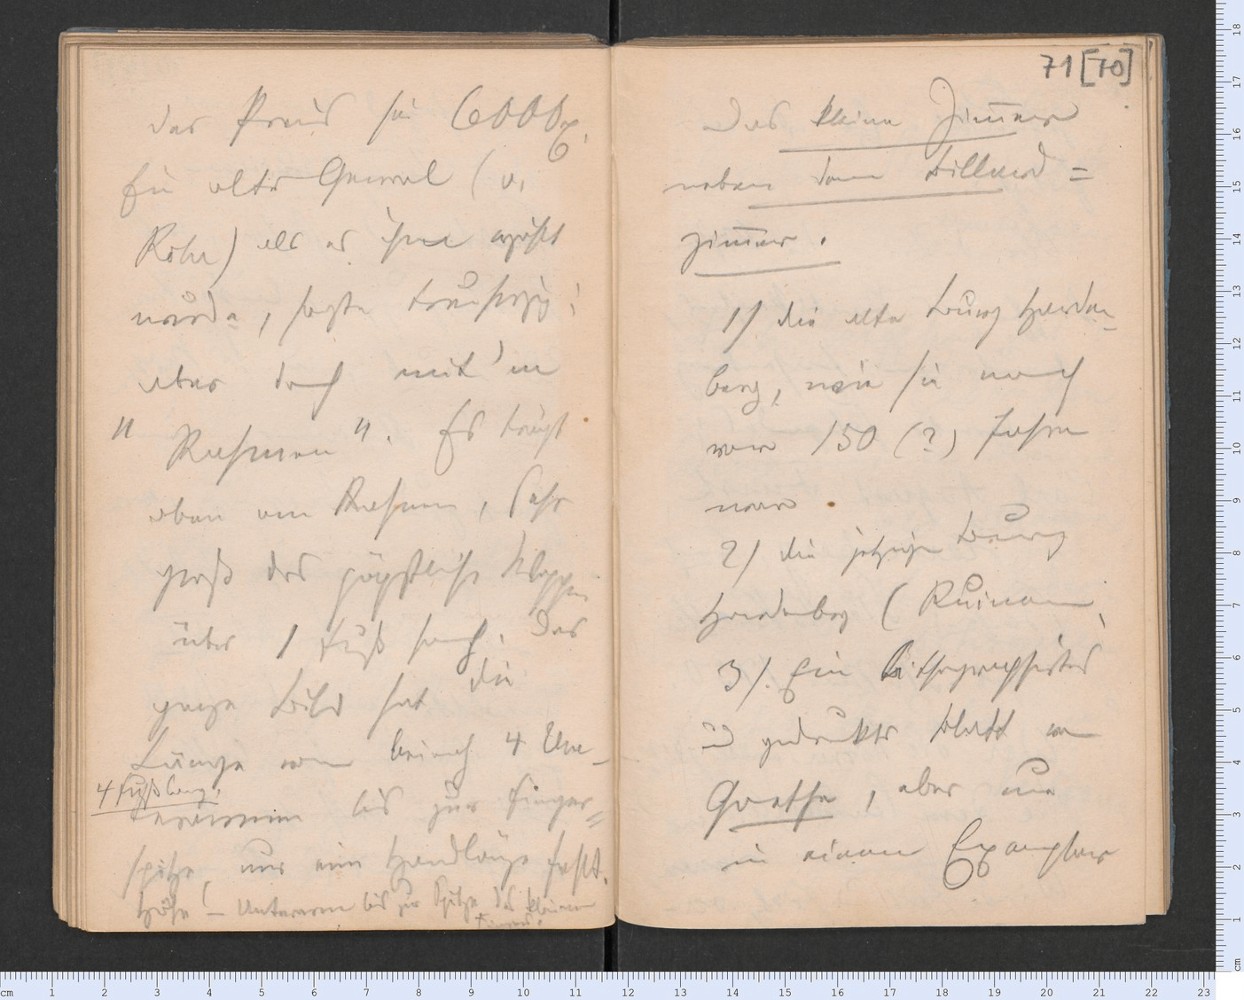 der Preis sei 6000 x.
Ein alter General (v.
Rohr) als es ihm erzählt
wurde, sagte treuherzig:
aber doch mit 'm
"Rahmen". Es trägt
oben am Rahmen, sehr
groß das päpstliche Wappen
über 1 Fuß hoch. Das
ganze Bild hat die
Länge von beinah 4
4 Fuß lang.
bis zur Finger=
spitze, nur eine Handlänge fehlt.
Höhe – Unterarm bis zur Spitze des kleinen
Fingers.
71[70]
Das kleine Zimmer
neben dem Billard=
zimmer.
1) die alte Burg Harden-
berg, wie sie noch
vor 150 (?) Jahren
war
2) die jetzige Burg
Hardenberg (Ruinen,
3). Ein lithographirtes
u gedrucktes Blatt von
Goethe, aber nur
in einem Exemplar